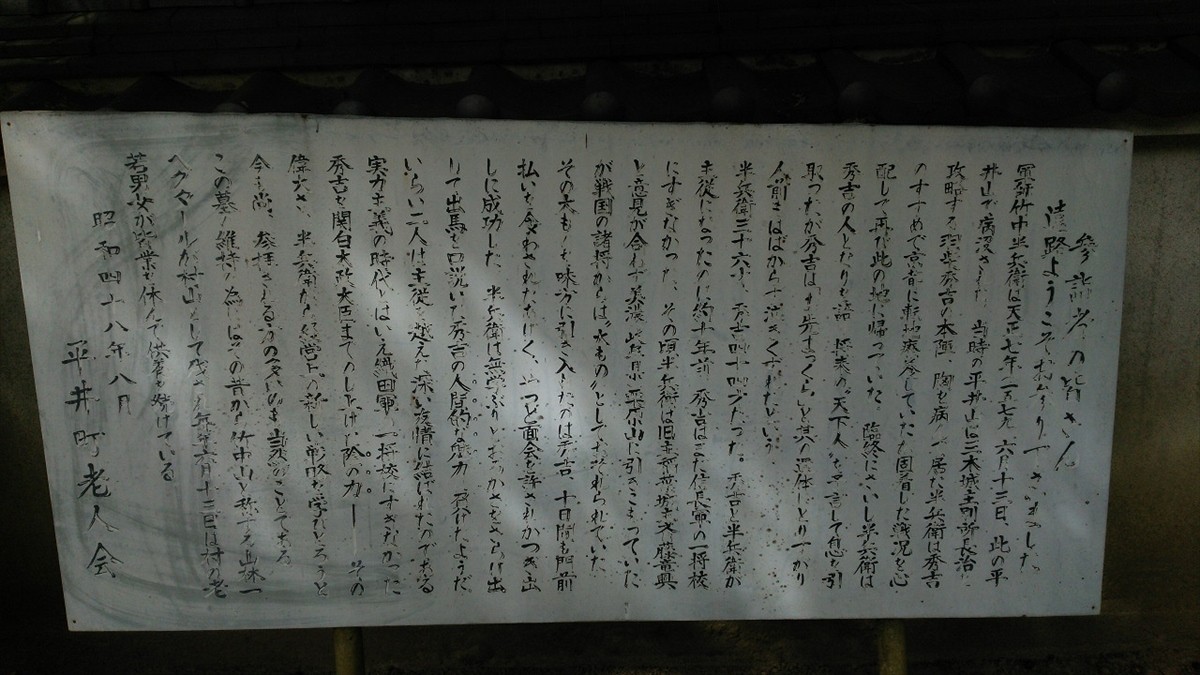 参詣者の皆さん
遠路ようこそおまいり下さいました。
軍師竹中半兵衛は天正七年(一五七九)六月十三日、此の平
井山で病没された。当時の平井山は三木城主別所長治を
攻略する羽柴秀吉の本陣、胸を病んで居た半兵衛は秀吉
のすすめで京都に転地療養していたが固着した戦況を心
配して再び此の地に帰っていた。臨終にさいし半兵衛は
秀吉の人となりを語り将来の"天下人"を予言して息を引
取ったが秀吉は
人前もはばからず泣きくずれたという
半兵衛三十六才、秀吉四十四才だった。秀吉と半兵衛が
主従になったのは約十年前 秀吉はまだ信長軍の一将校
にすぎなかった、その頃半兵衛は旧主
と意見が合わず美濃(岐阜県)菩提山に引きこもっていた
が戦国の諸将からは"水もの"としておそれられていた
その大もの味方に引き入れたのは秀吉、十日間も門前
払いを食わされたあげく、やっと面会を許されかつぎ出
しに成功した、半兵衛は無学ぶりとおろかさをさらけ出
して出馬を口説いた秀吉の人間的な魅力
いらい二人は主従を越えた深い友情に結ばれたのである
実力主義の時代とはいえ織田軍の一将校にすぎなかった
秀吉を関白太政大臣までのし上げた陰の力――その
偉大さ、半兵衛から経営上の新しい戦略を学びとろうと
今も尚、参拝される方の多いのも当然のことである
この墓の維持の為にはその昔から竹中山と称する山林一
ヘクタールが村山として残され毎年六月十三日は村の老
若男女が皆業を休んで供養を続けている
昭和四十八年八月
平井町老人会